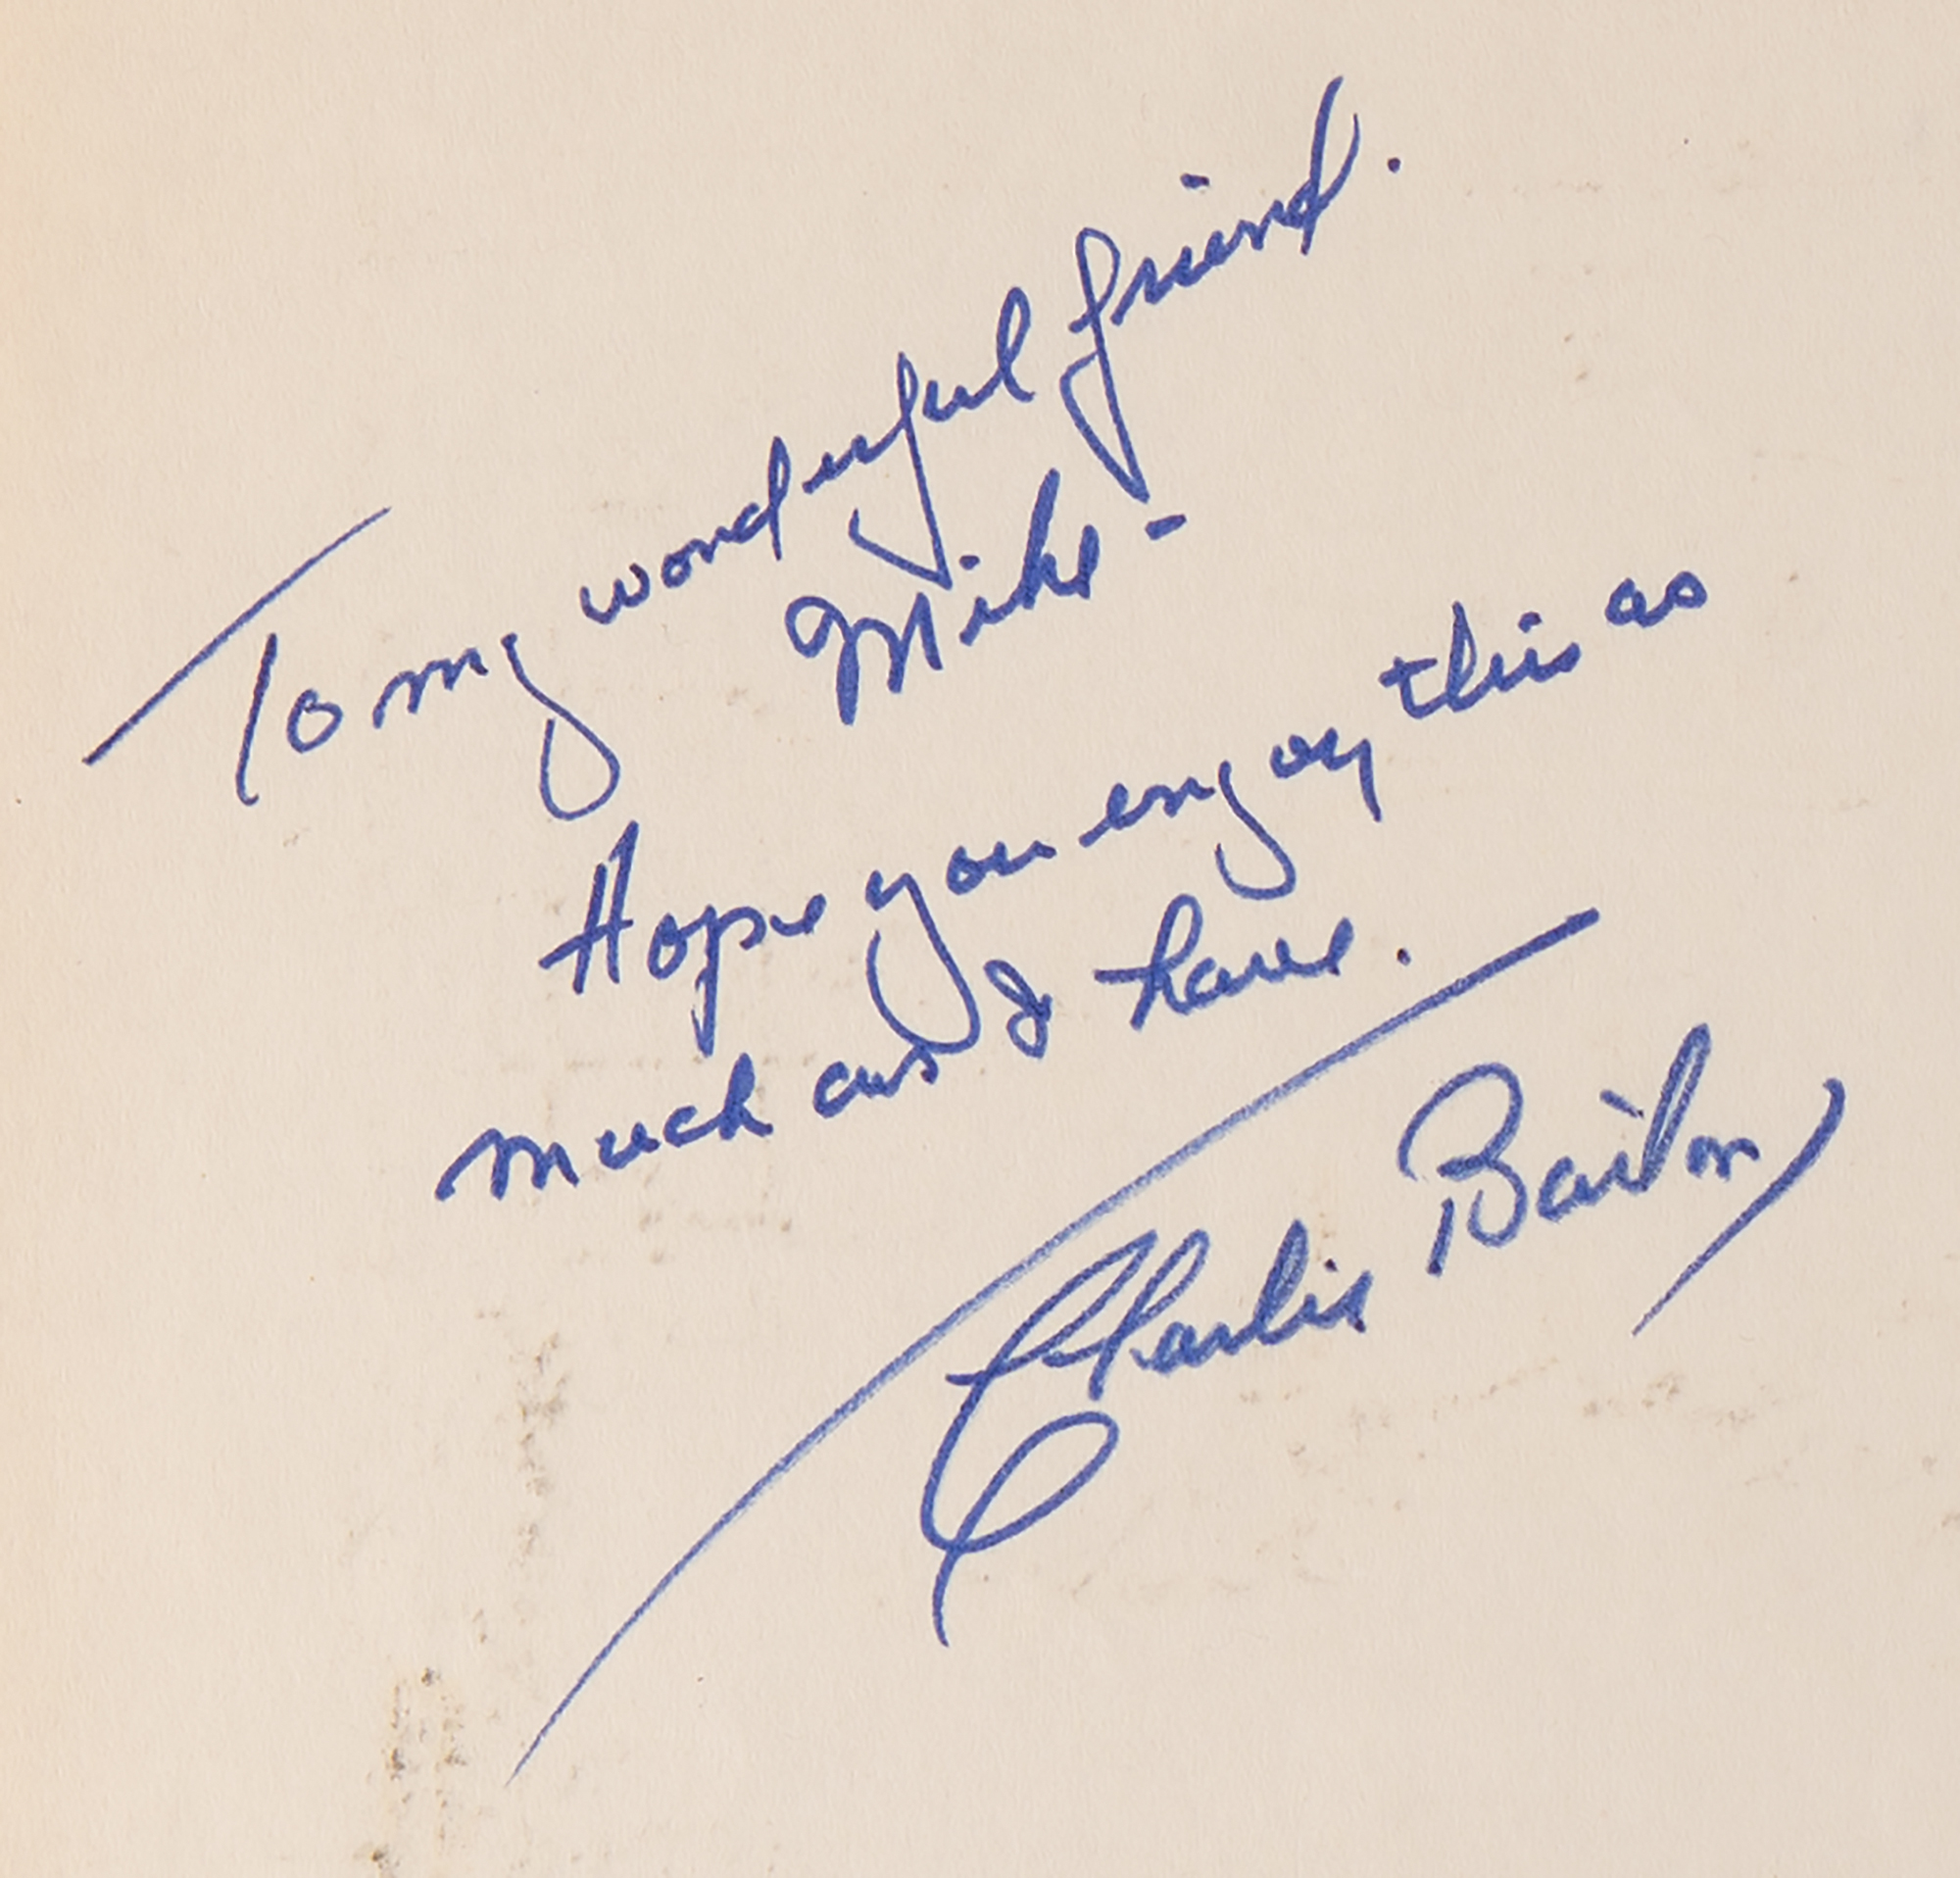 To my wonderful friend.
Mike -
Hope you enjoy this as
much as I have.
Charlie Barton